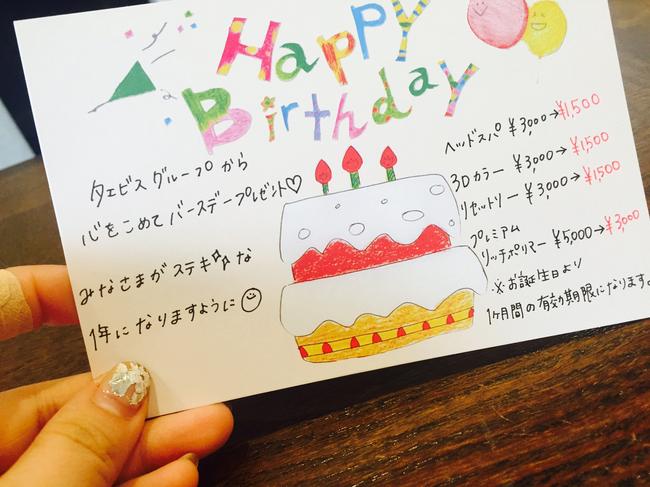 Happy
Birthday
タエビスグループから
心をこめてバースデープレゼント♡
みなさまがステキ✨な
1年になりますように☺
ヘッドスパ ¥3,000→¥1,500
3Dカラー ¥3,000→¥1500
リセットリー ¥3,000→¥1500
プレミアム
リッチポリマー ¥5,000→¥3,000
※お誕生日より
1ヶ月間の有効期限になります。